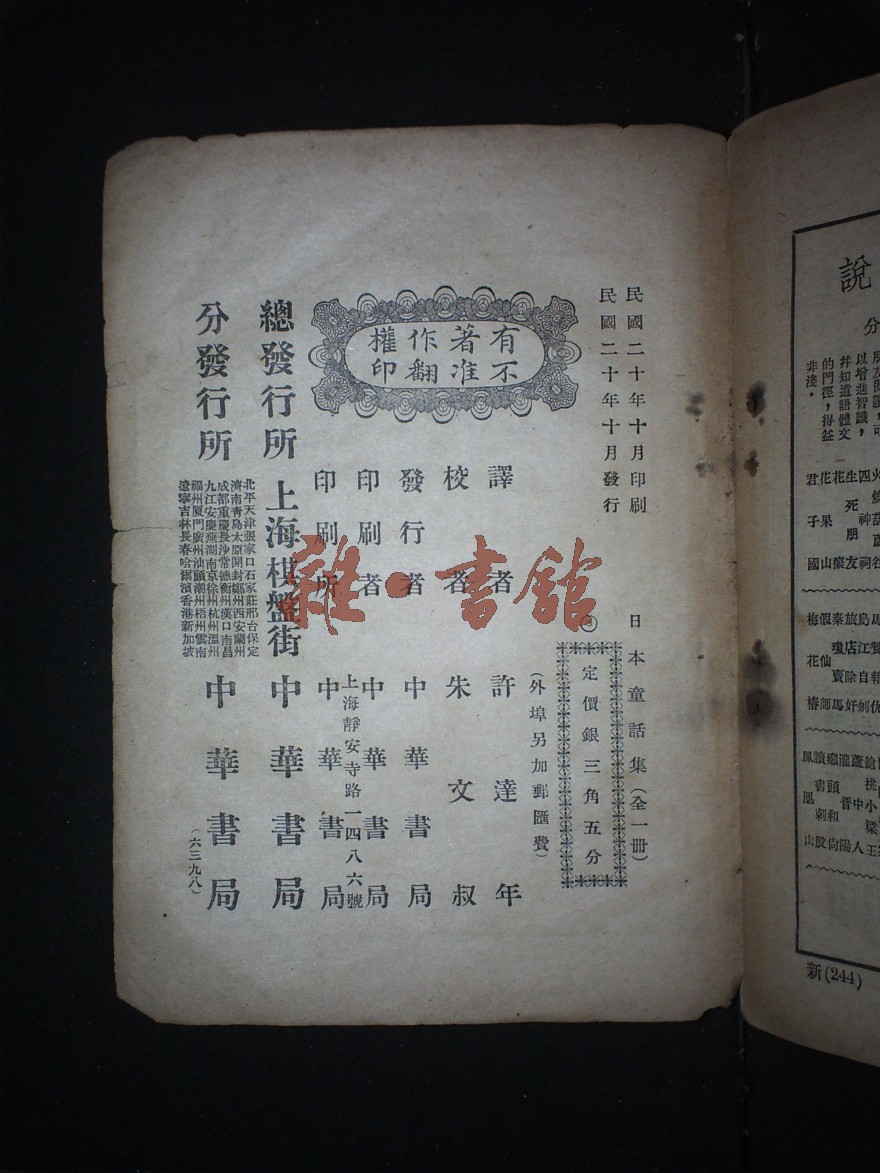 民國二十年十月印刷
民國二十年十月發行
日本童話集（全一冊）
定價銀三角五分
（外埠另加郵匯費）
有著作權
不准翻印
譯者 許達年
校者 朱文叔
發行者 中華書局
印刷者 中華書局
上海靜安寺路一四八六號
印刷所 中華書局
總發行所 上海棋盤街 中華書局
分發行所
北平天津張家口石家莊邢台保定
濟南青島太原開封鄭州西安蘭州
成都重慶長沙常德衡州漢口南昌
九江安慶蕪湖南京徐州杭州溫州
福州廈門廣州汕頭潮州梧州雲南
遼寧吉林長春哈爾濱香港新加坡
中華書局
（六三九八）
雜·書館
說
分
以增進智識，
幷知道語體文
的門徑，得益
非淺．
生死朋友
花果山
君子國
梅花椿
鳳凰山
新(244)